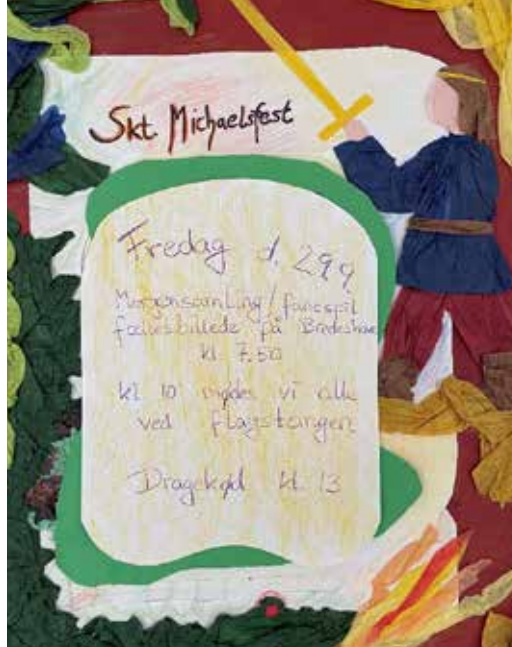 Skt. Michaelsfest
Fredag d. 29.9
Morgensamling/
fællesbillede på
kl 7.50
kl 10 mødes vi alle
ved flagstangen
Dragekød kl. 13